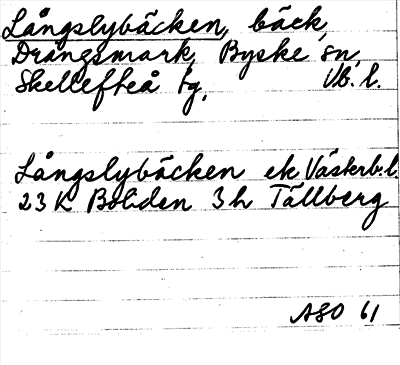 Långslybäcken, bäck,
Drängsmark, Byske sn,
Skellefteå tg, Vb. l.
Långslybäcken ek Västerb. l.
23 K Boliden 3h Tällberg
ASO 61